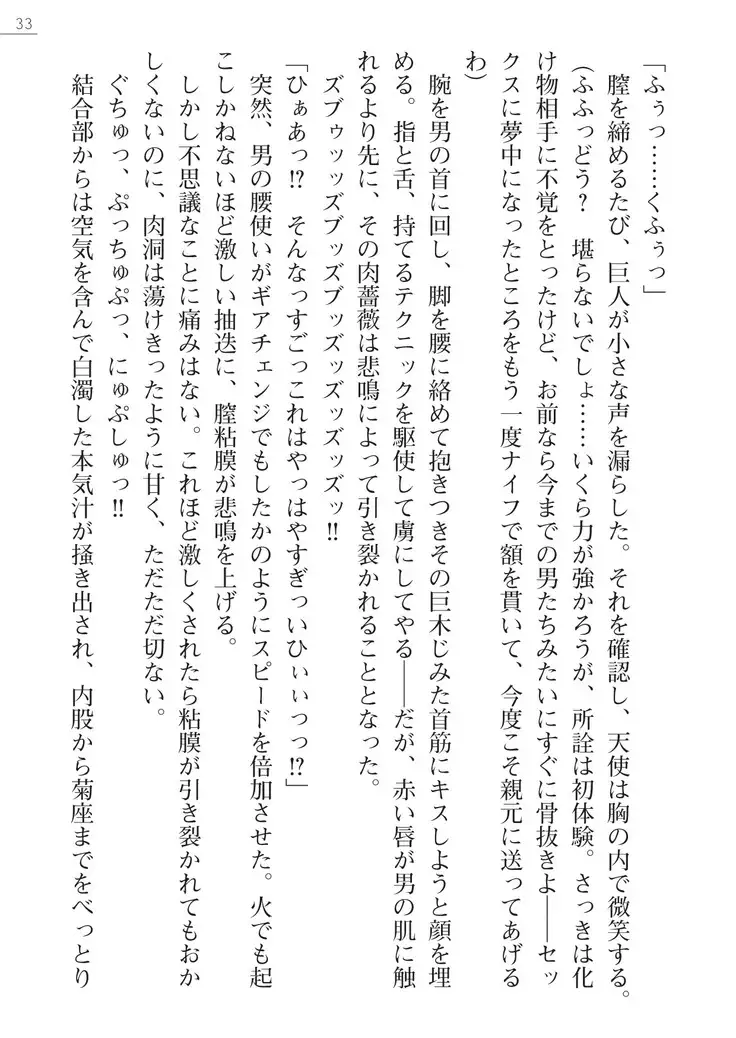 33
「ふぅっ……くふぅっ」
　膣を締めるたび、巨人が小さな声を漏らした。それを確認し、天使は胸の内で微笑する。
（ふふっどう？　堪らないでしょ……いくら力が強かろうが、所詮は初体験。さっきは化
け物相手に不覚をとったけど、お前なら今までの男たちみたいにすぐに骨抜きよ――セッ
クスに夢中になったところをもう一度ナイフで額を貫いて、今度こそ親元に送ってあげる
わ）
　腕を男の首に回し、脚を腰に絡めて抱きつきその巨木じみた首筋にキスしようと顔を埋
める。指と舌、持てるテクニックを駆使して虜にしてやる――だが、赤い唇が男の肌に触
れるより先に、その肉薔薇は悲鳴によって引き裂かれることとなった。
　ズブゥッッズブッズブッズッズッズッズッ!!
「ひぁあっ!?　そんなっすごっこれはやっはやすぎっいひぃぃっっ!?」
　突然、男の腰使いがギアチェンジでもしたかのようにスピードを倍加させた。火でも起
こしかねないほど激しい抽迭に、膣粘膜が悲鳴を上げる。
　しかし不思議なことに痛みはない。これほど激しくされたら粘膜が引き裂かれてもおか
しくないのに、肉洞は蕩けきったように甘く、ただただ切ない。
　ぐちゅっ、ぷっちゅぷっ、にゅぷしゅっ!!
　結合部からは空気を含んで白濁した本気汁が掻き出され、内股から菊座までをべっとり